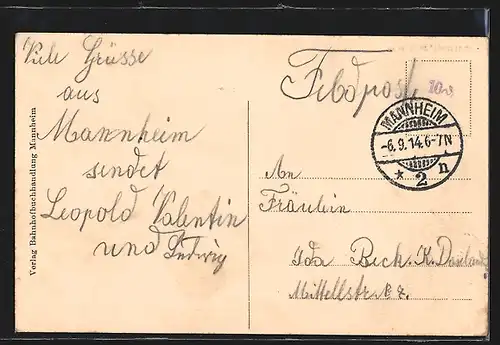 Viele Grüsse
aus
Mannheim
sendet
Leopold Valentin
und Ludwig
Verlag Bahnhofbuchhandlung Mannheim
Feldpost
MANNHEIM
-6.9.14.6-7N
* 2 n
An
Fräulein
Ida Beck. K.
Mittelstr.